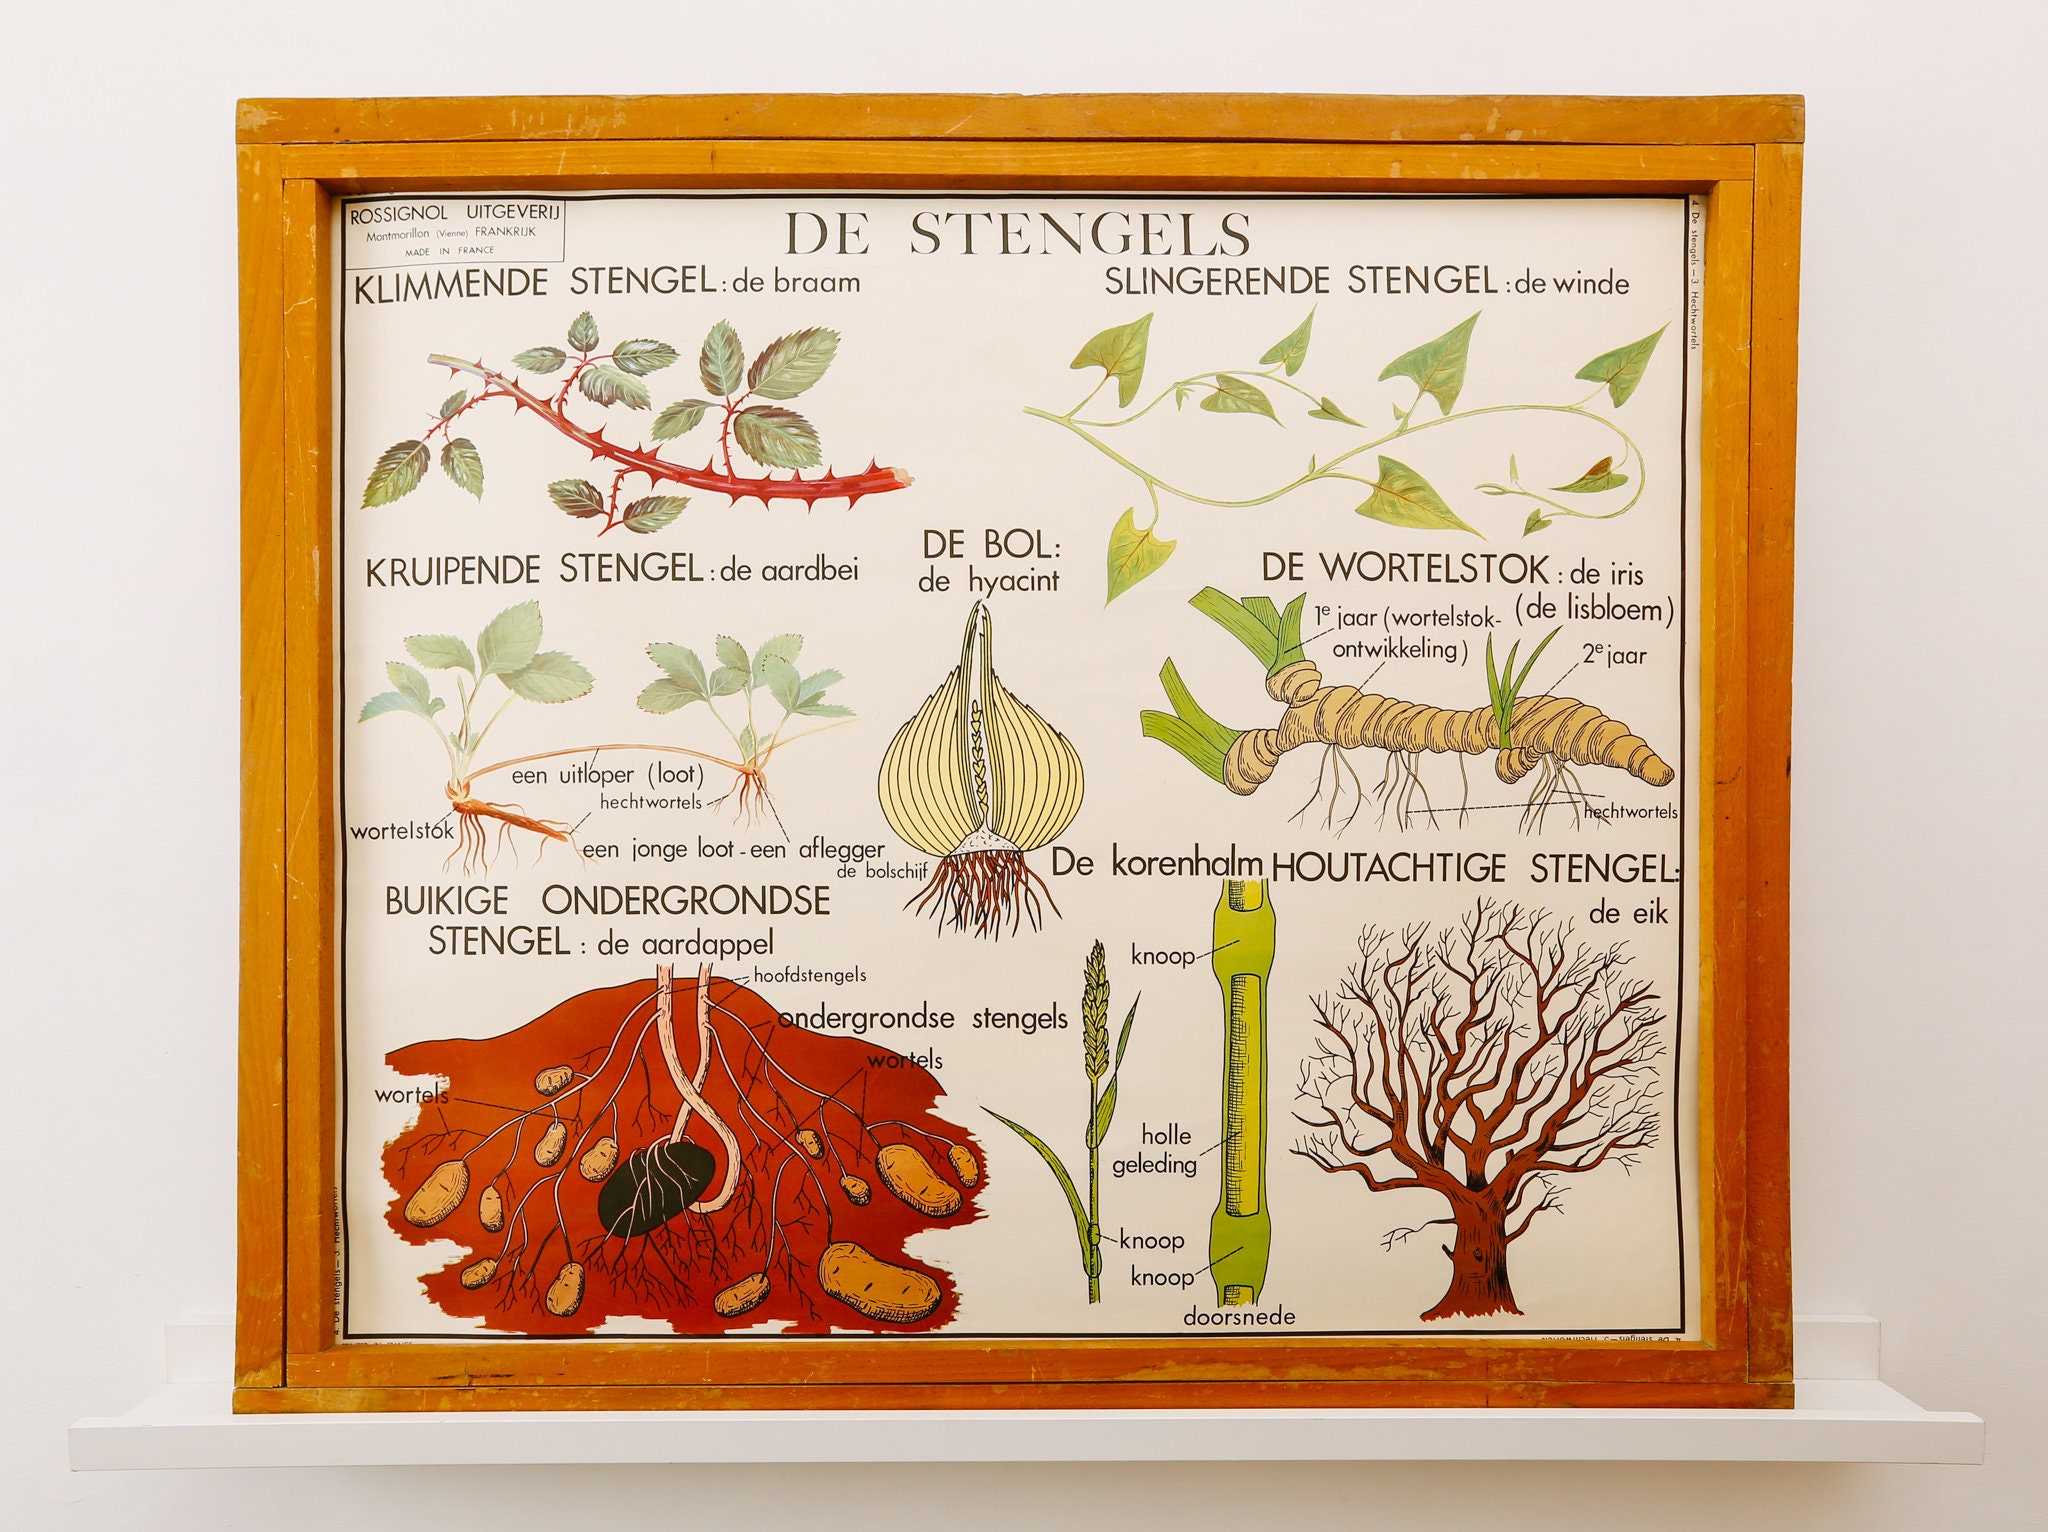 ROSSIGNOL UITGEVERIJ
Montmorillon (Vienne) FRANKRIJK
MADE IN FRANCE
DE STENGELS
4. De stengels — 3. Hechtwortels
KLIMMENDE STENGEL : de braam
SLINGERENDE STENGEL : de winde
KRUIPENDE STENGEL : de aardbei
een uitloper (loot)
hechtwortels
wortelstok
een jonge loot - een aflegger
DE BOL :
de hyacint
de bolschijf
DE WORTELSTOK : de iris
(de lisbloem)
1e jaar (wortelstok-
ontwikkeling)
2e jaar
hechtwortels
BUIKIGE ONDERGRONDSE
STENGEL : de aardappel
hoofdstengels
ondergrondse stengels
wortels
wortels
De korenhalm
knoop
holle
geleding
knoop
knoop
doorsnede
HOUTACHTIGE STENGEL :
de eik
4. De stengels — 3. Hechtwortels
4. De stengels — 3. Hechtwortels